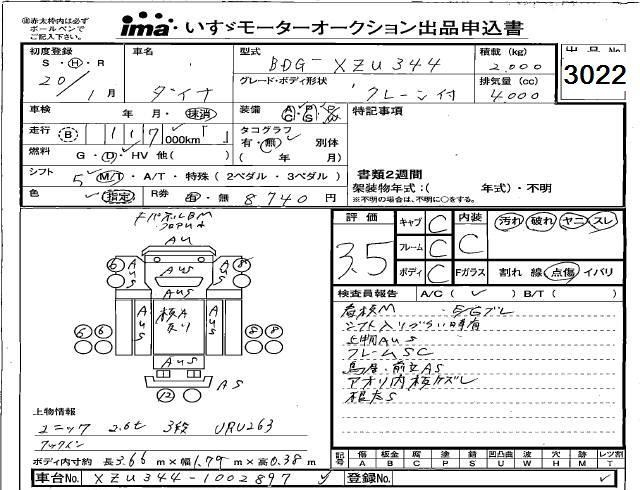 ㊟赤太枠内は必ず
ボールペンで
ご記入下さい。
ima いすゞモーターオークション出品申込書
初度登録 車名 型式 積載 (kg) 出品No.
S・H・R BDG-XZU344 2,000
20 / 1月 ダイナ グレード・ボディ形状 クレーン付 排気量 (cc) 4000 3022
車検 年 月・抹消 装備 特記事項
走行 B 117,000km タコグラフ
有・無 別体
燃料 G・D・HV 他( ) ( 年 月)
シフト 5 M/T・A/T・特殊(2ペダル・3ペダル) 書類2週間
架装物年式:( 年式)・不明
色 指定 R券 有・無 8740円 ※不明の場合は、不明に○をする。
評価 キャブ C 内装 汚れ 破れ ヤニ スレ
3.5 フレーム C C
ボディ C Fガラス 割れ 線 点傷 イバリ
検査員報告 A/C( ✓ ) B/T( )
シフト入りづらい時有
上物AUS
フレームSC
鳥居・前立AS
アオリ内板ケズレ
AUS
AUS
AUS
AUS
AUS
AUS
AUS
AUS
AS
6 8
6 6 8 8
12
上物情報
ユニック 2.6t 3段 URU263
フックイン
ボディ内寸約 長3.66m×幅1.79m×高0.38m
記号 傷A 板金B 腐C 塗P 錆S 凹凸曲U 波W 穴H 跡M レツ割T
車台No. XZU344-1002897 登録No.